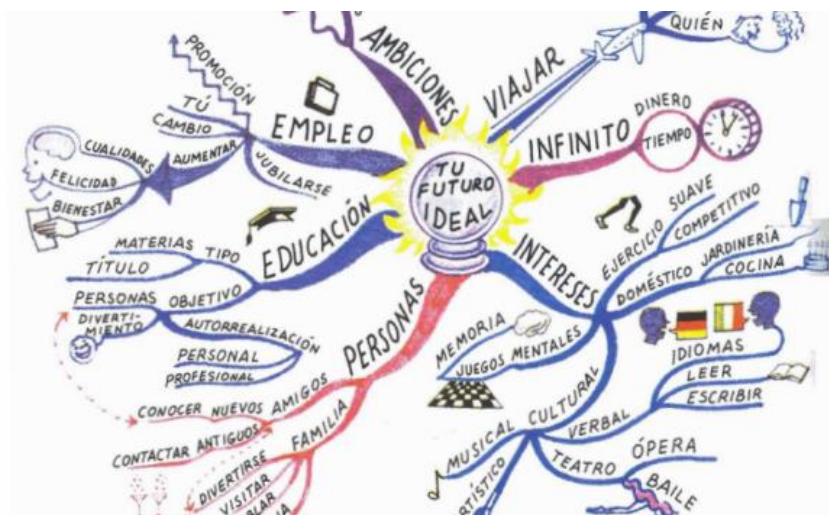 TU
FUTURO
IDEAL
AMBICIONES
VIAJAR
QUIÉN
INFINITO
DINERO
TIEMPO
INTERESES
EJERCICIO
SUAVE
COMPETITIVO
DOMÉSTICO
JARDINERÍA
COCINA
JUEGOS MENTALES
MEMORIA
CULTURAL
VERBAL
IDIOMAS
LEER
ESCRIBIR
TEATRO
ÓPERA
BAILE
MUSICAL
PERSONAS
AMIGOS
CONOCER NUEVOS
CONTACTAR ANTIGUOS
FAMILIA
DIVERTIRSE
VISITAR
EDUCACIÓN
TIPO
MATERIAS
TÍTULO
OBJETIVO
PERSONAS
DIVERTI-
MIENTO
AUTORREALIZACIÓN
PERSONAL
PROFESIONAL
EMPLEO
PROMOCIÓN
TÚ
CAMBIO
AUMENTAR
JUBILARSE
CUALIDADES
FELICIDAD
BIENESTAR